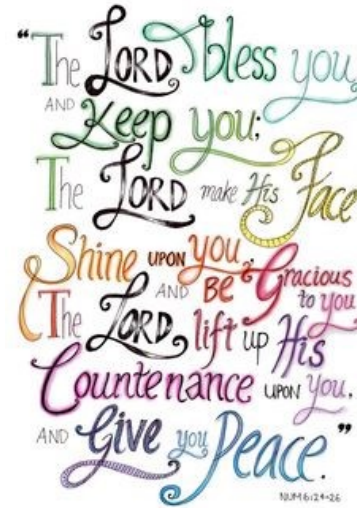 “The LORD bless you
AND Keep you;
The LORD make His Face
Shine UPON you;
AND BE Gracious to you
The LORD lift up His
Countenance UPON you,
AND Give you Peace.”
NUM 6:24-26